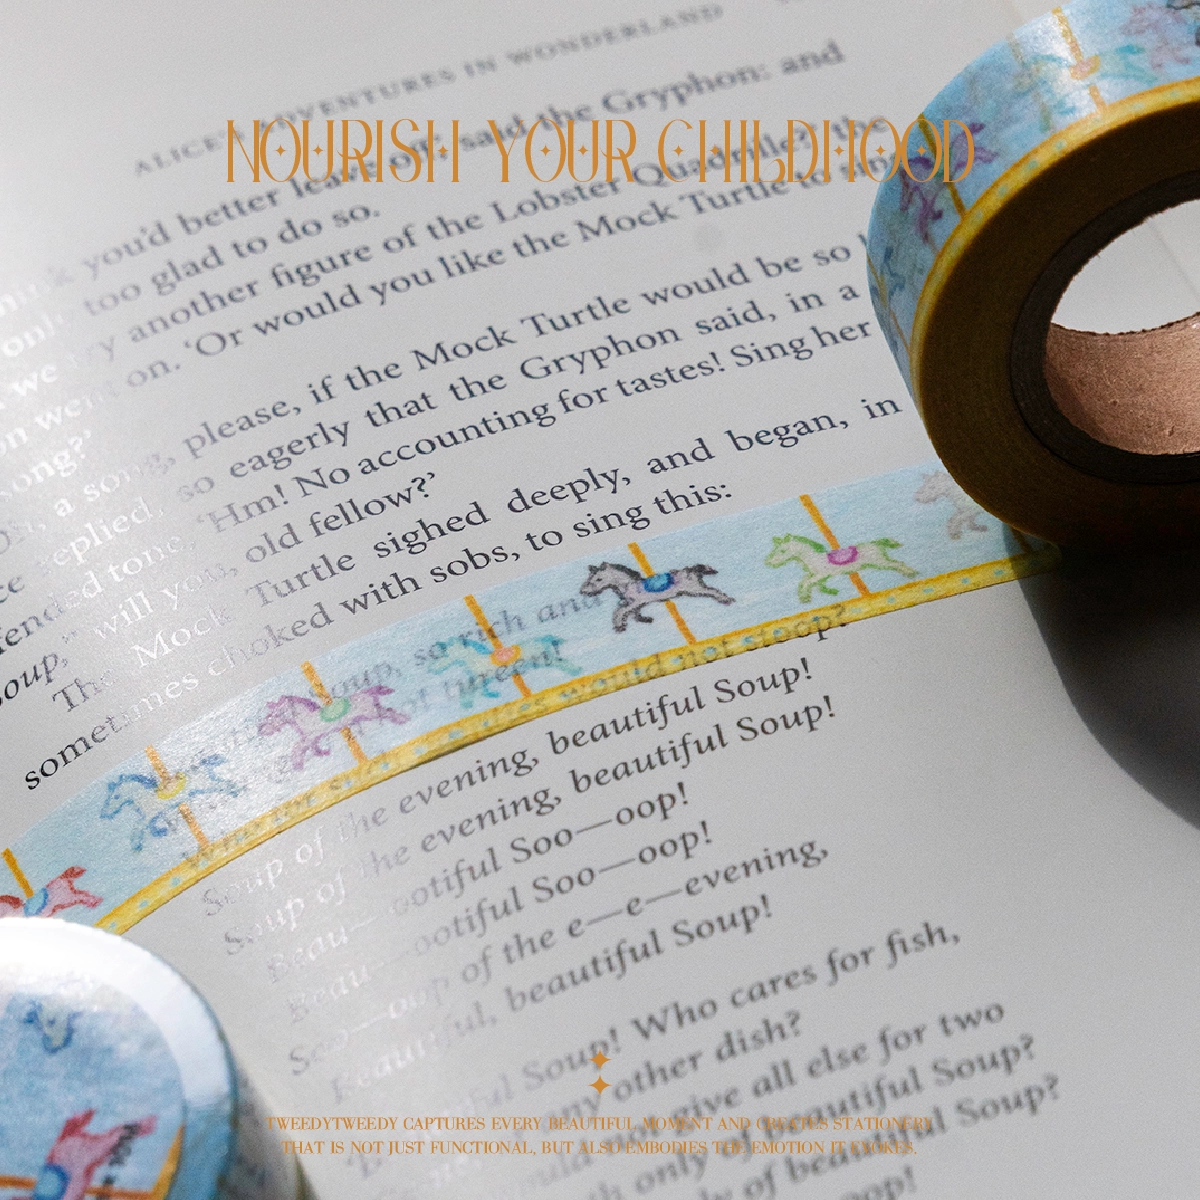 ALICE'S ADVENTURES IN WONDERLAND
NOURISH YOUR CHILDHOOD
you'd better leave off,' said the Gryphon: and
too glad to do so.
try another figure of the Lobster Quadrille? the
on. 'Or would you like the Mock Turtle to
a song, please, if the Mock Turtle would be so
replied, so eagerly that the Gryphon said, in a
tone, 'Hm! No accounting for tastes! Sing her
Soup," will you, old fellow?'
The Mock Turtle sighed deeply, and began, in
sometimes choked with sobs, to sing this:
Soup, so rich and
not tureen!
would not stoop?
Soup of the evening, beautiful Soup!
Soup of the evening, beautiful Soup!
Beau—ootiful Soo—oop!
Beau—ootiful Soo—oop!
Soo—oop of the e—e—evening,
Beautiful, beautiful Soup!
Soup! Who cares for fish,
any other dish?
give all else for two
only beautiful Soup?
of beautiful Soup?
TWEEDYTWEEDY CAPTURES EVERY BEAUTIFUL MOMENT AND CREATES STATIONERY
THAT IS NOT JUST FUNCTIONAL, BUT ALSO EMBODIES THE EMOTION IT EVOKES.